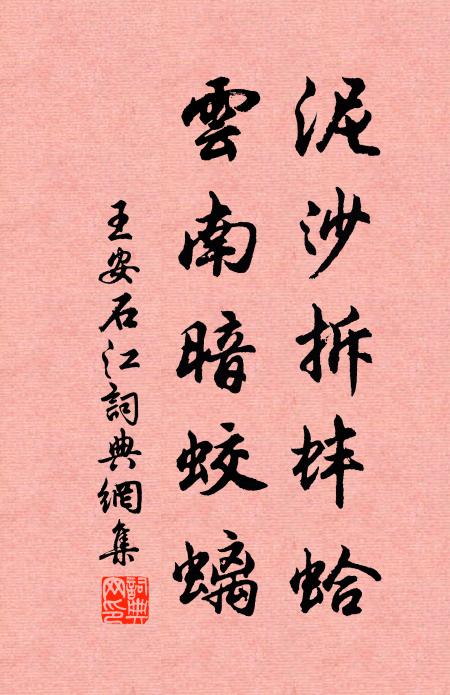 泥沙拆蚌蛤
雲南暗蛟螭
王安石江詞典網集